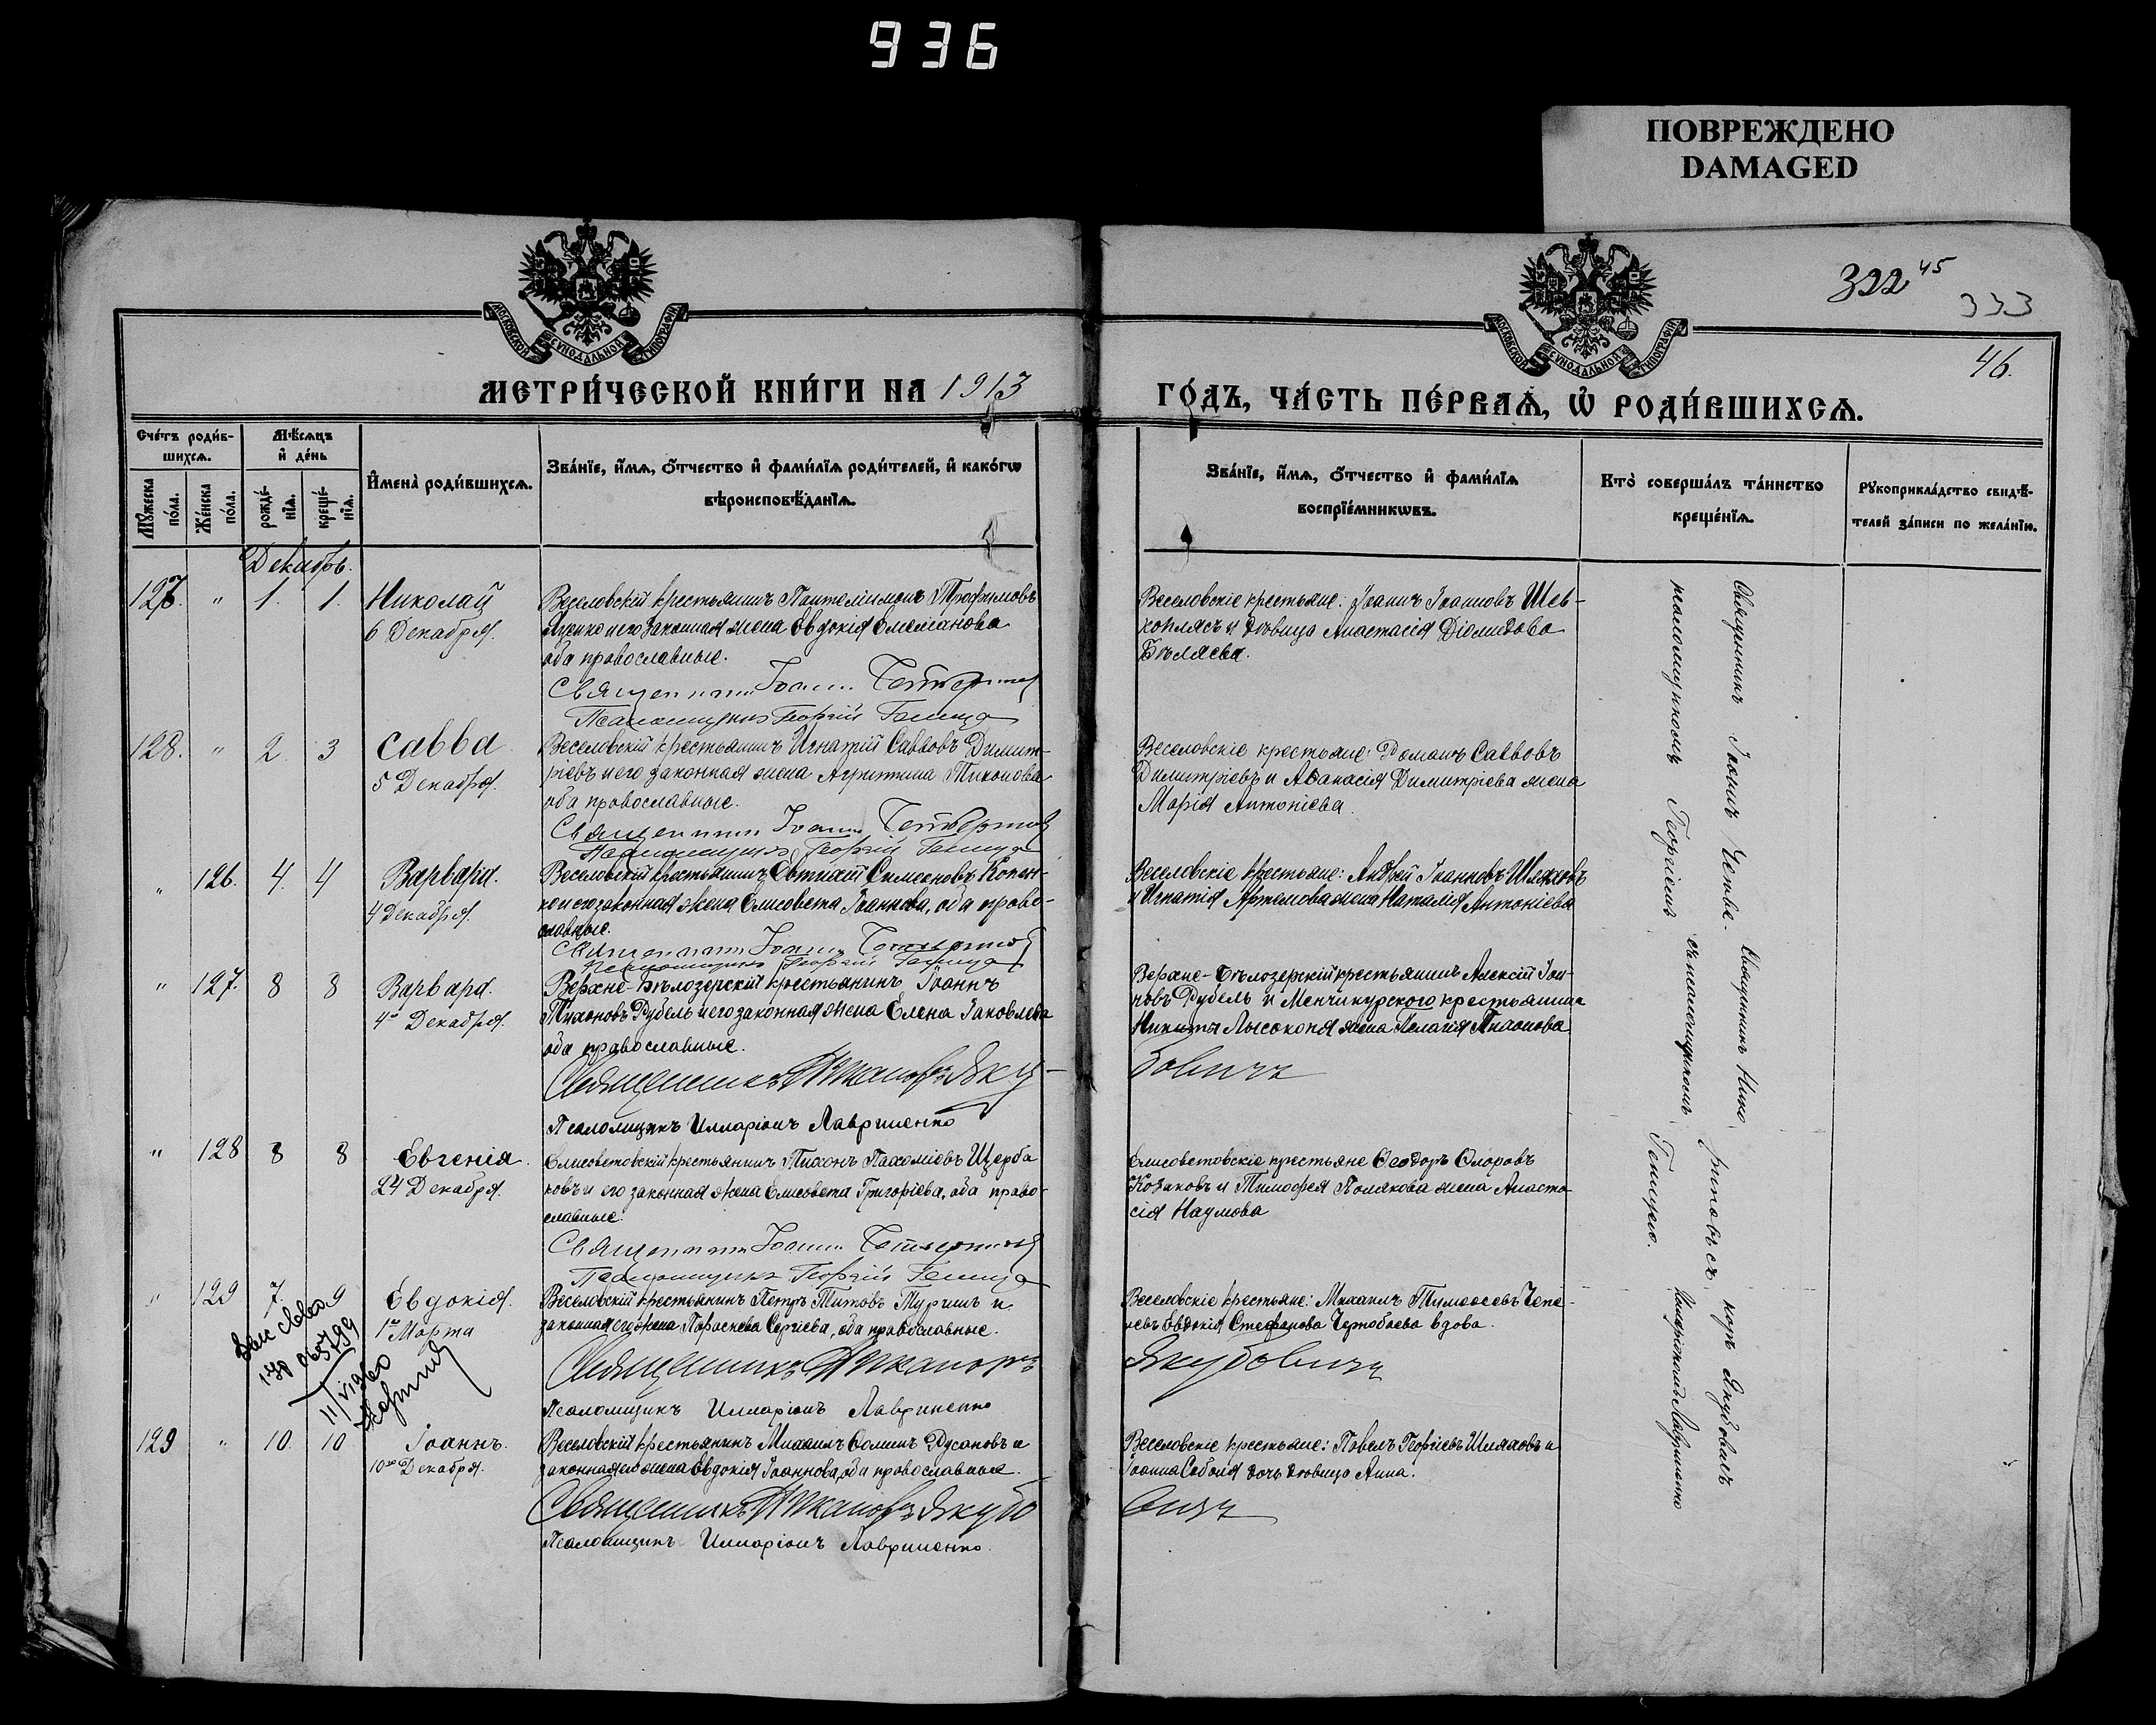 936
ПОВРЕЖДЕНО
DAMAGED
МОСКОВСКОЙ СѴНОДАЛЬНОЙ ТИПОГРАФІИ
МОСКОВСКОЙ СѴНОДАЛЬНОЙ ТИПОГРАФІИ
322 45
333
46.
МЕТРИ́ЧЕСКОЙ КНИ́ГИ НА 1913
ГО́ДЪ, ЧА́СТЬ ПЕ́РВАѦ, Ѡ҆ РОДИ́ВШИХСѦ.
Сче́тъ роди́в-
шихсѧ.
Мꙋ́жеска по́ла.
Же́нска по́ла.
Мѣ́сѧцъ
и҆ де́нь
рожде́-
нїѧ.
креще́-
нїѧ.
И҆мена̀ роди́вшихсѧ.
Зва́нїе, и҆́мѧ, ѻ҆́тчество и҆ фами́лїѧ роди́телей, и҆ како́гѡ
вѣроисповѣ́данїѧ.
Зва́нїе, и҆́мѧ, ѻ҆́тчество и҆ фами́лїѧ
воспрїе́мникѡвъ.
Кто̀ соверша́лъ та́инство
креще́нїѧ.
Рꙋкоприкла́дство свидѣ́-
телей за́писи по жела́нїю.
Декабрь.
127. " 1. 1. Николай
6 Декабря.
Веселовскій крестьянинъ Пантелимонъ Трофимовъ
и его законная жена Евдокія Емеліанова
оба православные.
Священникъ Іоаннъ
Псаломщикъ Георгій Геница
Веселовскіе крестьяне: Іоаннъ Іоанновъ Шев-
коплясъ и дѣвица Анастасія Діомидова
Бѣляева.
128. " 2. 3 Савва
5 Декабря.
Веселовскій крестьянинъ Игнатій Саввовъ Димит-
ріевъ и его законная жена Агриппина Тихонова
оба православные.
Священникъ Іоаннъ
Псаломщикъ Георгій Геница
Веселовскіе крестьяне: Романъ Савовъ
Димитріевъ и Аѳанасія Димитріева жена
Марія Антоніева.
" 126. 4. 4 Варвара.
4 Декабря.
Веселовскій крестьянинъ Евтихій Симеоновъ
и его законная жена Елисавета Іоаннова, оба право-
славные.
Священникъ Іоаннъ
Псаломщикъ Георгій Геница
Веселовскіе крестьяне: Андрей Іоанновъ Шляховъ
и Игнатія Артемова жена Наталія Антоніева
" 127. 8 8 Варвара.
4го Декабря.
Верхне-Бѣлозерскій крестьянинъ Іоаннъ
Тихоновъ Рубель и его законная жена Елена Іаковлева
оба православные.
Священникъ Никаноръ Яку-
бовичъ
Псаломщикъ Илларіонъ Лавриненко
Верхне-Бѣлозерскій крестьянинъ Алексій Іоан-
новъ Рубель и Менчикурского крестьянина
Никиты Лысоконя жена Пелагія Тихонова
" 128 8 8 Евгенія.
24 Декабря.
Елисаветовскій крестьянинъ Тихонъ Пахоміевъ Щерба
ковъ и его законная жена Елисавета Григоріева, оба право-
славные.
Священникъ Іоаннъ
Псаломщикъ Георгій Геница
Елисаветовскіе крестьяне Ѳеодоръ Флоровъ
Козаковъ и Тимофея Полякова жена Анаста-
сія Наумова
" 129 7. 9 Евдокія.
1го Марта
Веселовскій крестьянинъ Петръ Титовъ и
законная его жена Параскева Сергіева, оба православные.
Священникъ Никаноръ
Якубовичъ
Псаломщикъ Илларіонъ Лавриненко
Веселовскіе крестьяне: Михаилъ Тимоѳеевъ
Евдокія Стефанова Чернобаева вдова.
11/VI 960
129 " 10. 10 Іоаннъ.
10го Декабря.
Веселовскій крестьянинъ Михаилъ Ѳоминъ Русановъ и
законная его жена Евдокія Іоаннова, оба православные.
Священникъ Никаноръ Якубо
вичъ
Псаломщикъ Илларіонъ Лавриненко.
Веселовскіе крестьяне: Павелъ Георгіевъ Шляховъ и
Іоанна дочь дѣвица Анна.
Священникъ Іоаннъ
псаломщикомъ Георгіемъ Геницею.
Священникъ Никаноръ Якубовичъ
съ псаломщикомъ Илларіономъ Лавриненко